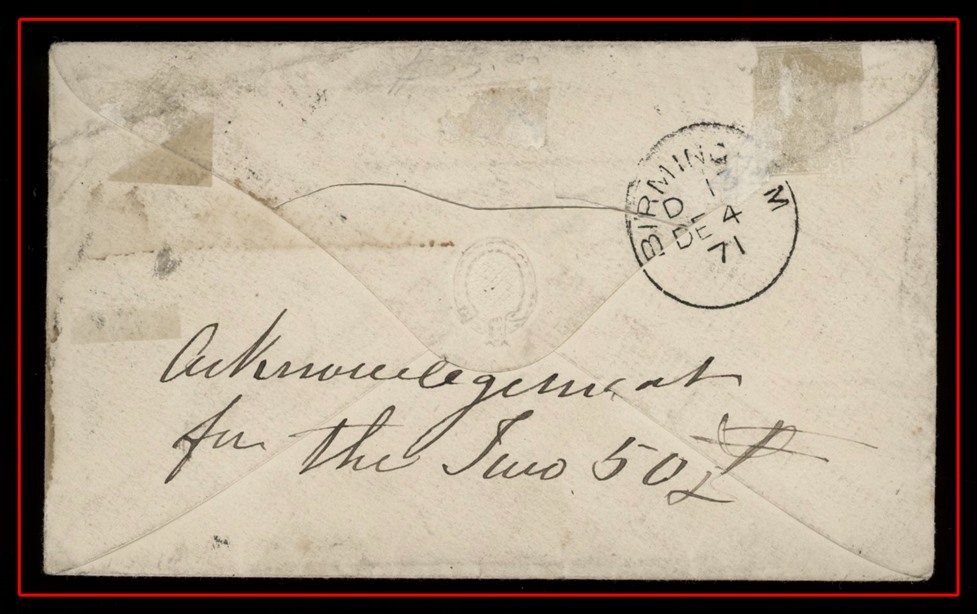 BIRMING M
D 1
DE 4
71
Acknowledgement
for the Two 50£